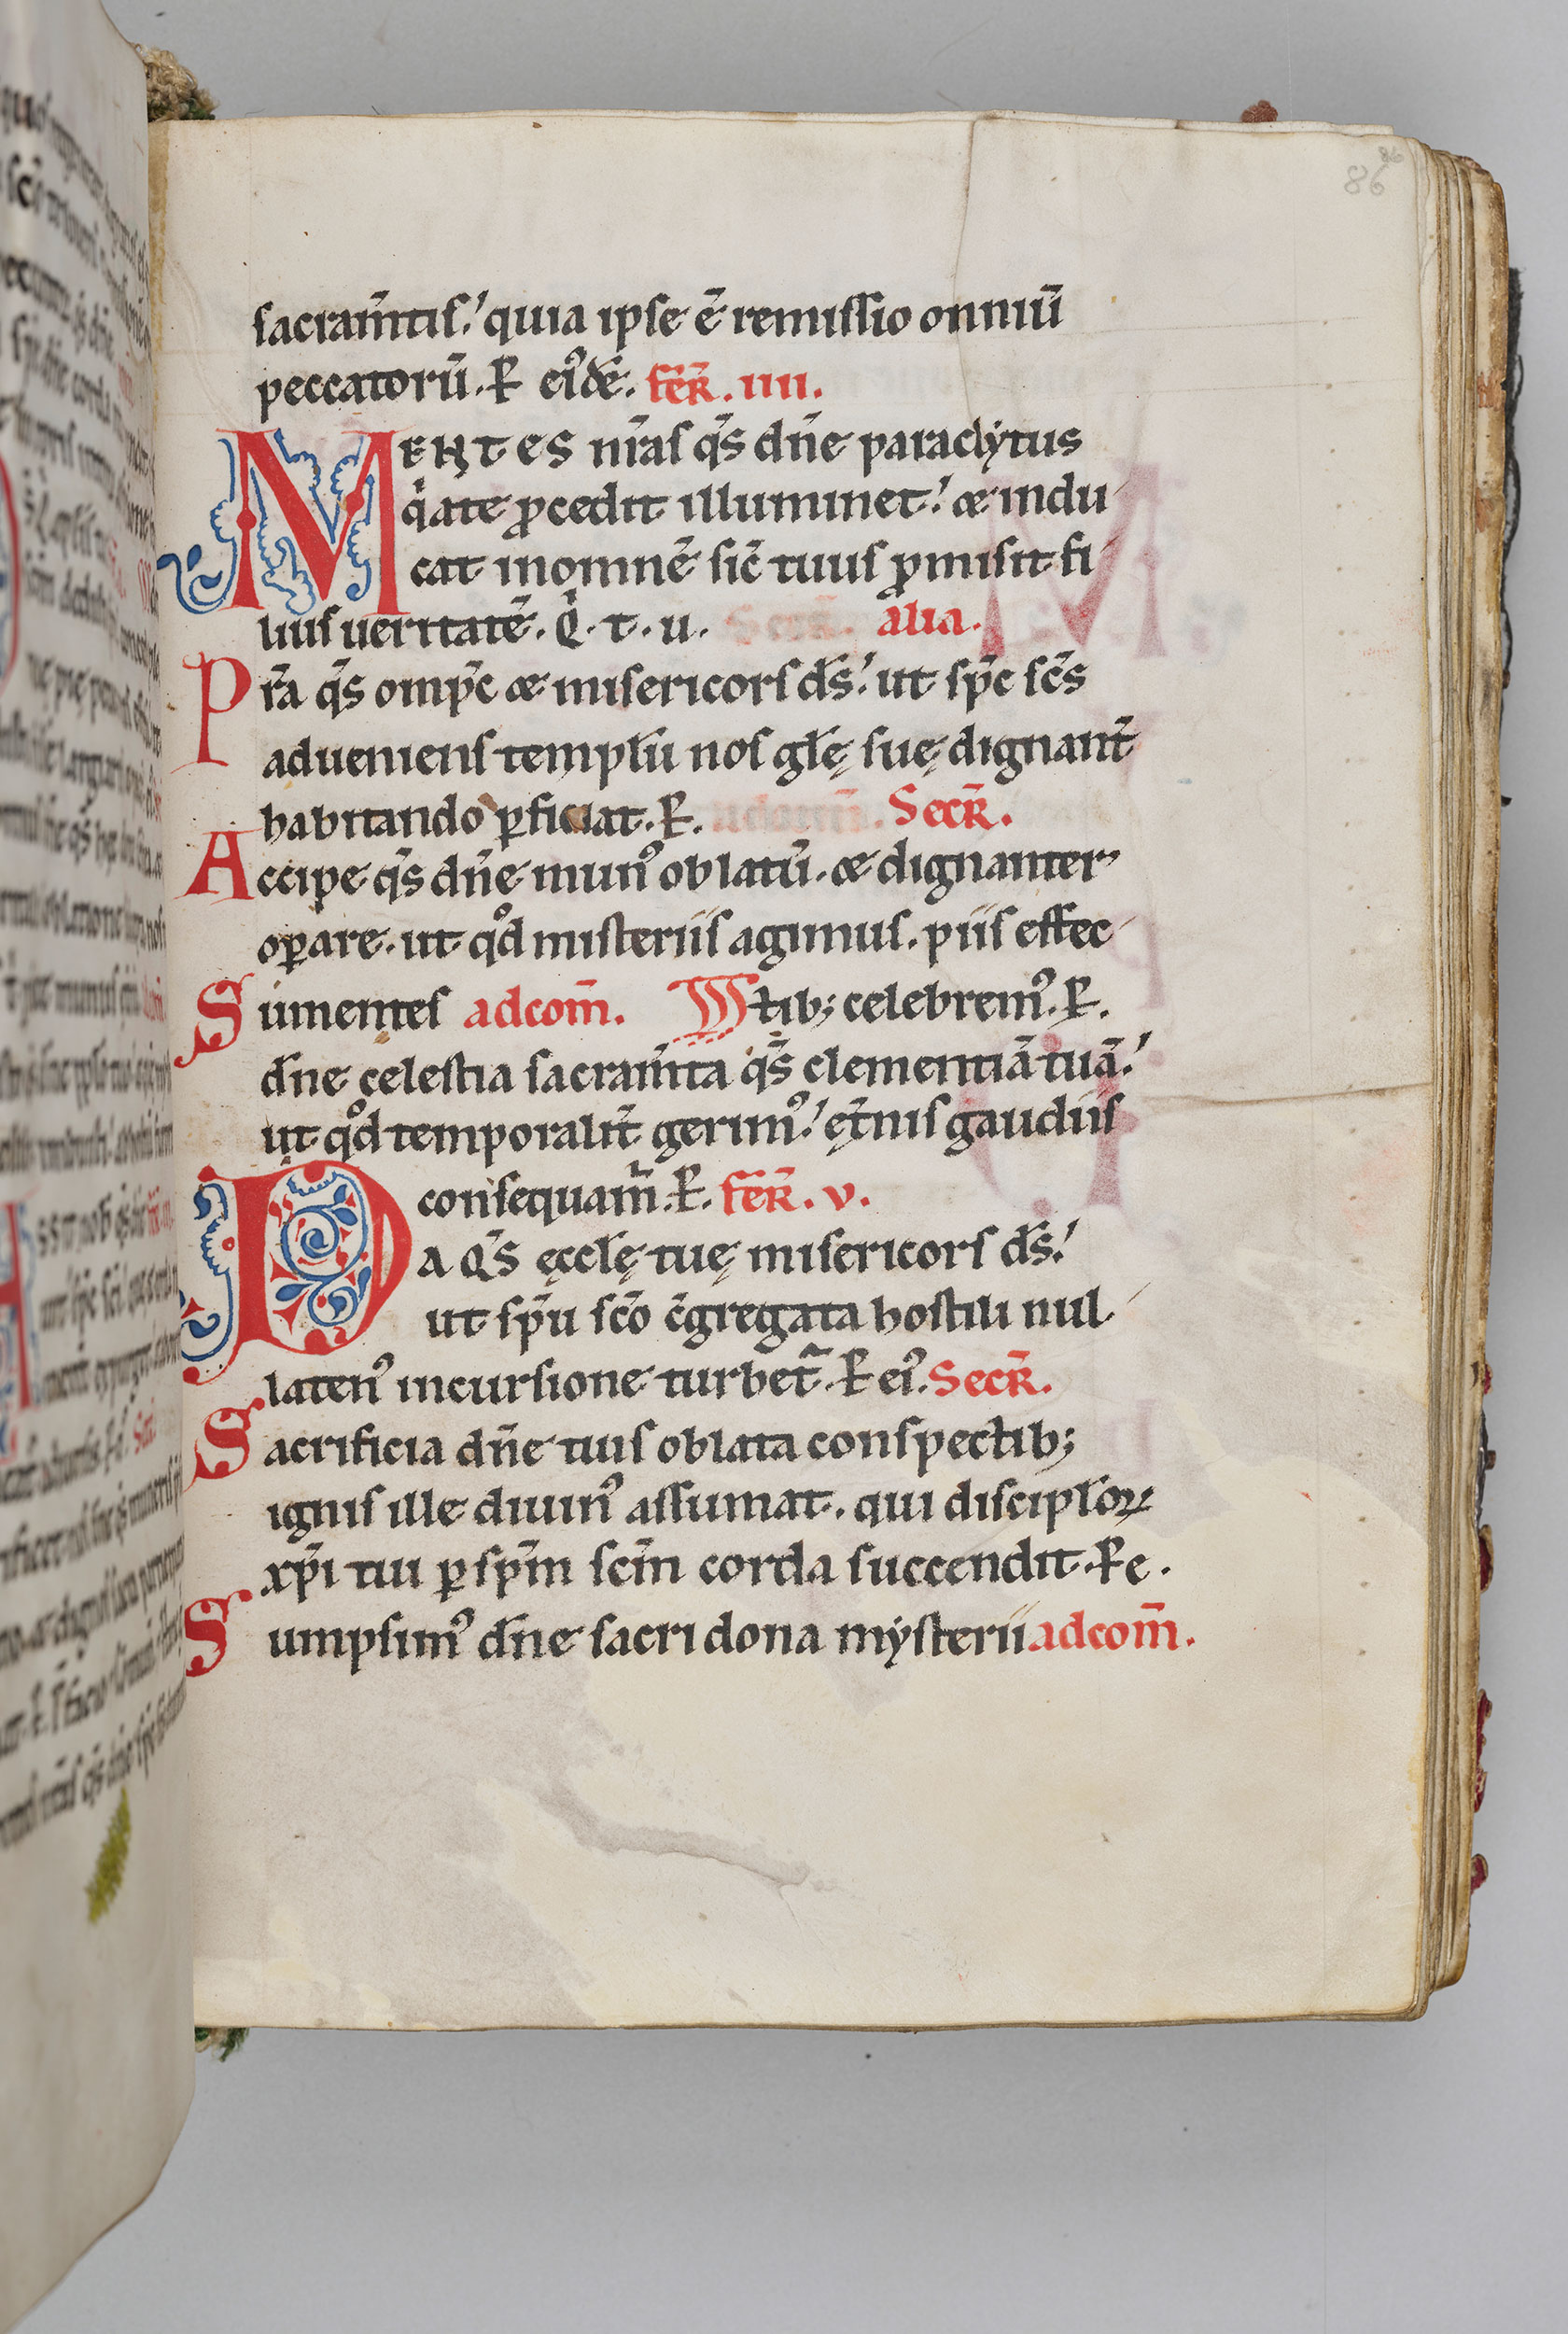 86
86
sacram̄tis. quia ipse ē remissio omniū
peccatorū. P eiꝰdē. fēr. iiii.
MENTES nr̄as qs̄ dn̄e paraclẏtus
q̇ a te ꝓcedit illuminet. & indu
cat in omnē sic̄ tuus ꝓmisit fi
lius ueritatē. Q̇. t. u. Secr̄. alia.
Pr̄a qs̄ omp̄c & misericors ds̄. ut sp̄c sc̄s
adueniens templū nos glę̄ suę dignant̄
habitando ꝑficiat. P. Secr̄.
Accipe qs̄ dn̄e munꝰ oblatū. & dignanter
oꝑare. ut qd̊ misteriis agimus. piis effec
Sumentes adcom̄. tib; celebremꝰ. P.
dn̄e celestia sacram̄ta qs̄ clementiā tuā.
ut qd̊ temporalit̄ gerimꝰ. et̄nis gaudiis
consequam̄. P. fēr. v.
DA QS̄ ęcclę̄ tuę misericors ds̄.
ut sp̄u sc̄o c̄gregata hostili nul
latenꝰ incursione turbet̄. P eiꝰ. Secr̄.
Sacrificia dn̄e tuis oblata conspectib;
ignis ille diuinꝰ assumat. qui disciplōꝝ
xp̄i tui ꝑ sp̄m sc̄m corda succendit. P e.
Sumpsimꝰ dn̄e sacri dona mẏsterii adcom̄.